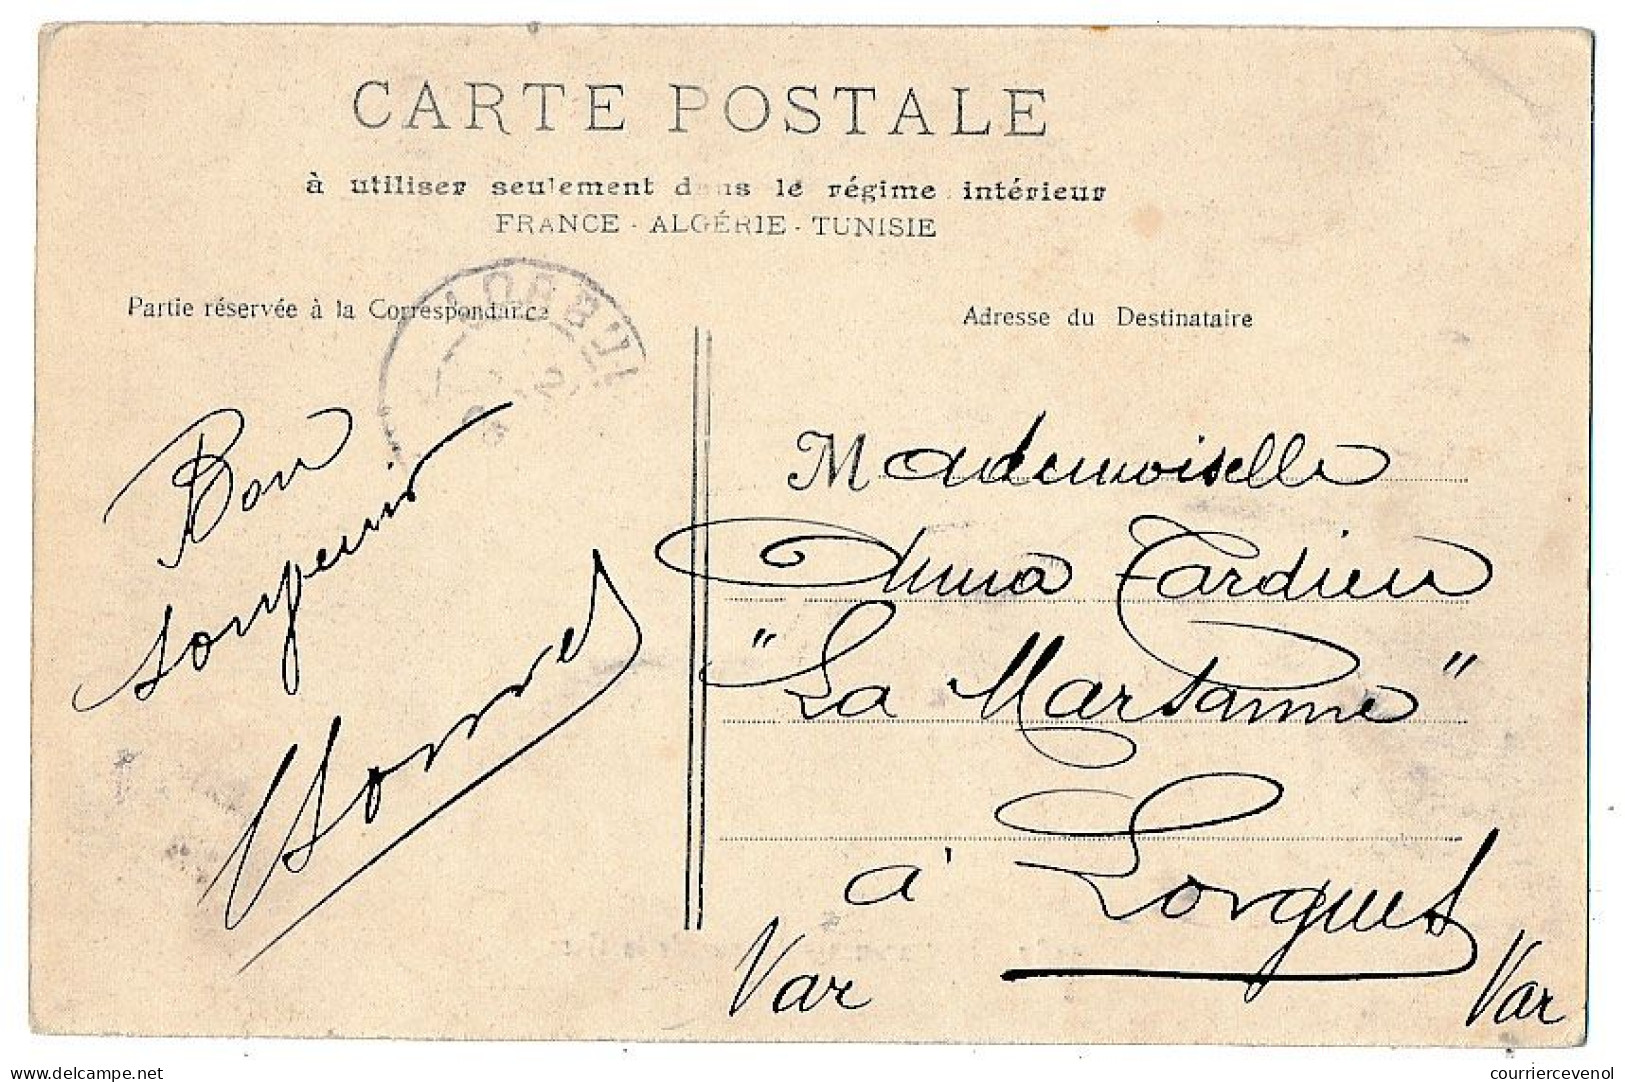 CARTE POSTALE
à utiliser seulement dans le régime intérieur
FRANCE - ALGÉRIE - TUNISIE
Partie réservée à la Correspondance
Adresse du Destinataire
Bon
souvenir
Mademoiselle
Anna Tardieu
"La Marsanne"
à Lorgues
Var
Var
courriercevenol